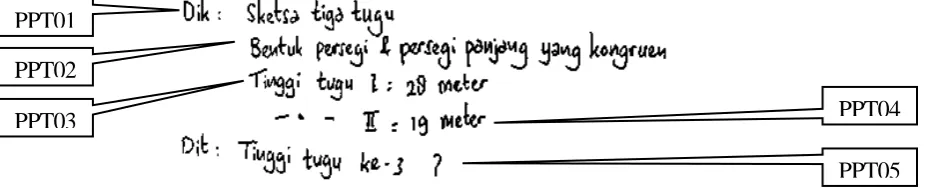 PPT01
Dik : Sketsa tiga tugu
PPT02
Bentuk persegi & persegi panjang yang kongruen
PPT03
Tinggi tugu I = 28 meter
PPT04
— • — II = 19 meter
Dit : Tinggi tugu ke-3 ?
PPT05